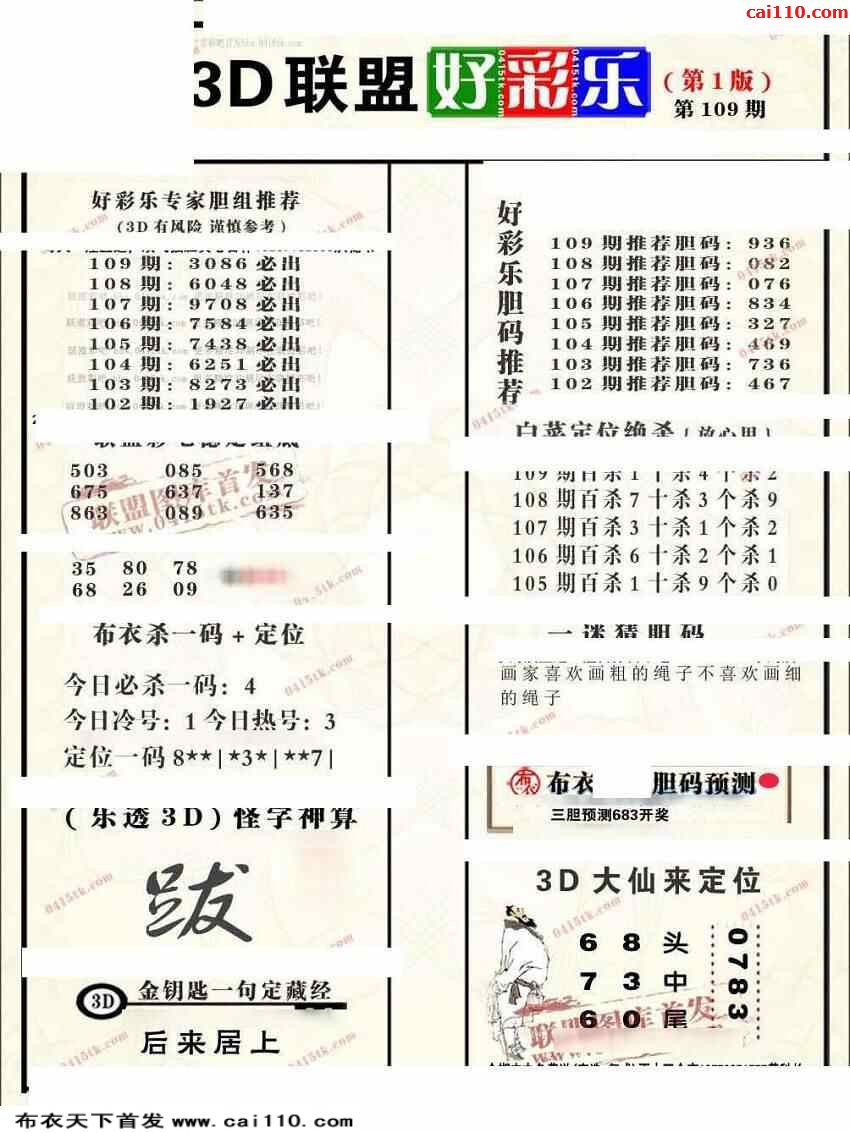 cai110.com
3D联盟好彩乐
(第1版)
第109期
好彩乐专家胆组推荐
(3D有风险 谨慎参考)
109期: 3086必出
108期: 6048必出
107期: 9708必出
106期: 7584必出
105期: 7438必出
104期: 6251必出
103期: 8273必出
102期: 1927必出
503 085 568
675 637 137
863 089 635
联盟图库首发
www.0415tk.com
35 80 78
68 26 09
布衣杀一码+定位
今日必杀一码: 4
今日冷号: 1 今日热号: 3
定位一码8**|*3*|**7|
(乐透3D)怪字神算
跋
3D 金钥匙一句定藏经
后来居上
好彩乐胆码推荐
109期推荐胆码: 936
108期推荐胆码: 082
107期推荐胆码: 076
106期推荐胆码: 834
105期推荐胆码: 327
104期推荐胆码: 469
103期推荐胆码: 736
102期推荐胆码: 467
白菜定位绝杀(放心用)
109期百杀1十杀4个杀2
108期百杀7十杀3个杀9
107期百杀3十杀1个杀2
106期百杀6十杀2个杀1
105期百杀1十杀9个杀0
一迷猜胆码
画家喜欢画粗的绳子不喜欢画细
的绳子
布衣 胆码预测
三胆预测683开奖
3D大仙来定位
6 8 头
7 3 中
6 0 尾
0783
联盟图库首发
布衣天下首发 www.cai110.com